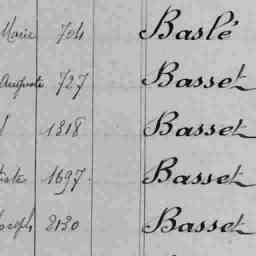 Marie 704 Baslé
Auguste 727 Basset
1318 Basset
1697 Basset
Joseph 2130 Basset